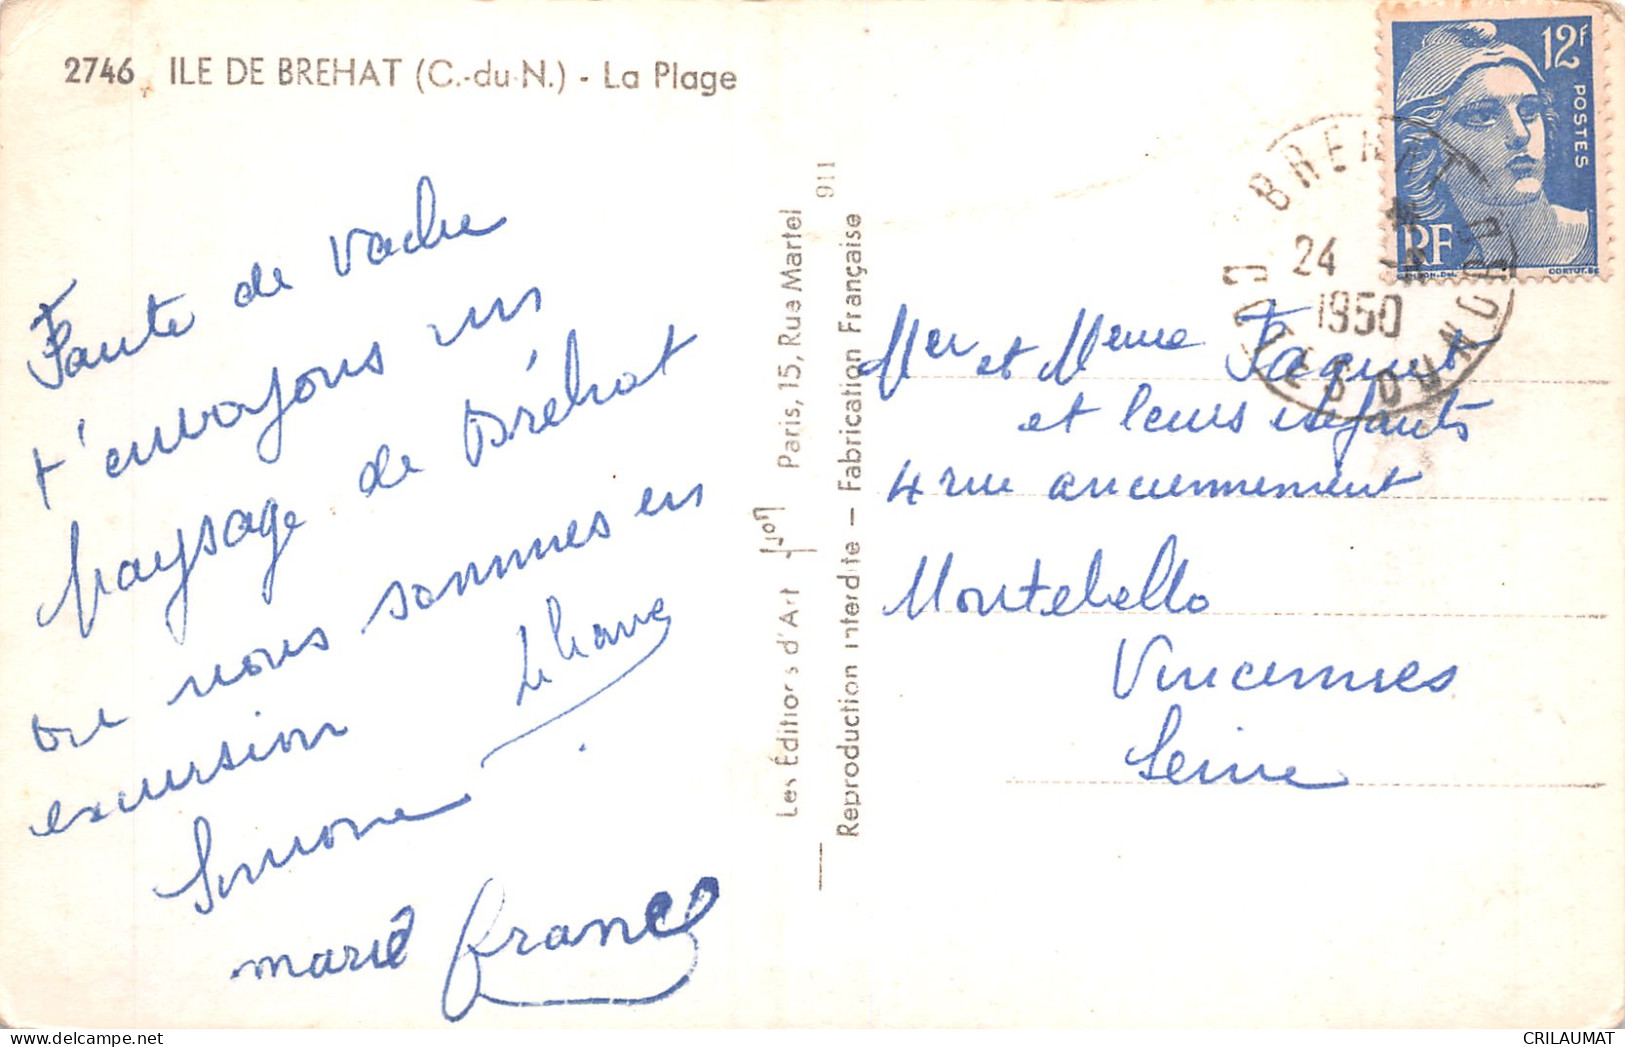 2746 ILE DE BREHAT (C.-du-N.) - La Plage
Faute de Vache
t'envoyons un
paysage de Bréhat
ou nous sommes en
excursion
Simone
marie france
Les Éditions d'Art Yvon Paris, 15, Rue Martel
911
Reproduction interdite — Fabrication Française
12f
POSTES
RF
CORTOT.SC
BREHAT
24
1950
COTES DU NORD
Mer et Meme Jaquet
et leurs enfants
4 rue anciennement
Montebello
Vincennes
Seine
CRILAUMAT